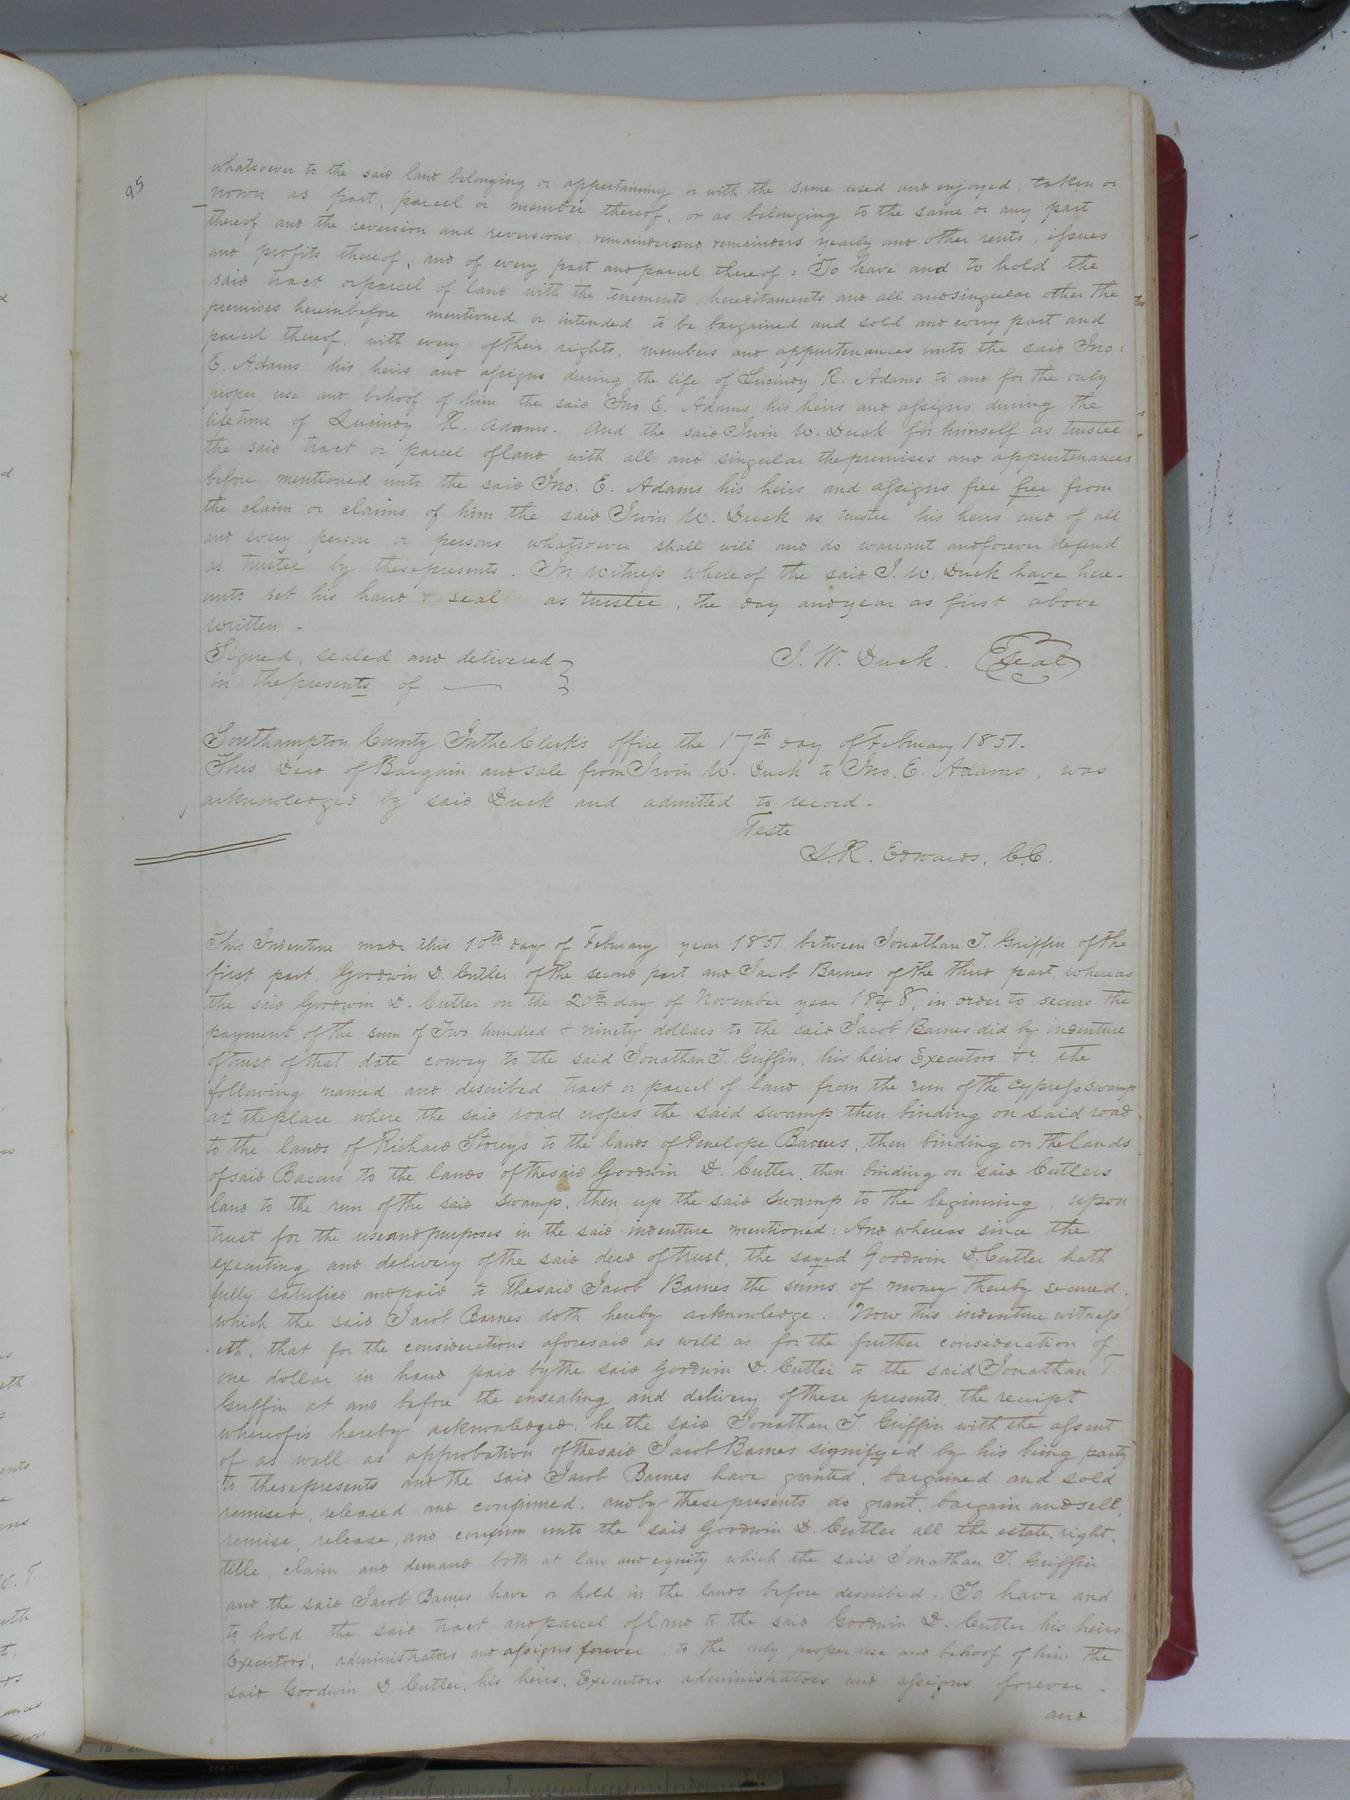 25
whatsoever to the said land belonging or appertaining or with the same used and enjoyed, taken or
nown as part, parcel or member thereof, or as belonging to the same or any part
thereof and the reversion and reversions, remainder and remainders yearly and other rents, issues
and profits thereof, and of every part and parcel thereof: To have and to hold the
said tract or parcel of land with the tenements, hereditaments and all and singular other the
premises hereinbefore mentioned or intended to be bargained and sold and every part and
parcel thereof, with every of their rights, members and appurtenances unto the said Jno:
E. Adams his heirs and assigns during the life of Lucindy R. Adams to and for the only
proper use and behoof of him the said Jno. E. Adams his heirs and assigns during the
lifetime of Lucindy R. Adams. And the said Irvin W. Duck for himself as trustee
the said tract or parcel of land with all and singular the premises and appurtenances
before mentioned unto the said Jno. E. Adams his heirs and assigns free free from
the claim or claims of him the said Irvin W. Duck as trustee his heirs and of all
and every person or persons whatsoever shall will and do warrant and forever defend
as trustee by these presents. In witness whereof the said I. W. Duck have here-
unto set his hand & seal as trustee, the day and year as first above
written.
Signed, sealed and delivered
in the presents of
I. W. Duck. Seal
Southampton County In the Clerk's office the 17th day of February 1851.
This Deed of Bargain and sale from Irvin W. Duck to Jno. E. Adams, was
acknowledged by said Duck and admitted to record.
Teste
L. R. Edwards, C.C.
This Indenture made this 10th day of February year 1851 between Jonathan T. Griffin of the
first part, Goodwin D. Cutler of the second part and Jacob Barnes of the third part, whereas
the said Goodwin D. Cutler on the 20th day of November year 1848, in order to secure the
payment of the sum of Two hundred & ninety dollars to the said Jacob Barnes did by indenture
of trust of that date convey to the said Jonathan T. Griffin, his heirs Executors &c. the
following named and described tract or parcel of land from the run of the Cypress swamp
at the place where the said road crosses the said swamp then binding on said road
to the lands of Richard Storeys to the lands of Penelope Bacus, then binding on the lands
of said Bacus to the lands of the said Goodwin D. Cutler, then binding on said Cutlers
land to the run of the said swamp, then up the said swamp to the beginning, upon
trust for the use and purposes in the said indenture mentioned: And whereas since the
executing and delivery of the said deed of trust, the sayed Goodwin D. Cutler hath
fully satisfied and paid to the said Jacob Barnes the sums of money thereby secured,
which the said Jacob Barnes doth hereby acknowledge. Now this indenture witness
eth, that for the considerations aforesaid as well as for the further consideration of
one dollar in hand paid by the said Goodwin D. Cutler to the said Jonathan T.
Griffin at and before the ensealing and delivery of these presents, the receipt
whereof is hereby acknowledged, he the said Jonathan T. Griffin with the assent
of as well as approbation of the said Jacob Barnes signifyed by his being party
to these presents and the said Jacob Barnes have granted, bargained and sold
remised, released and confirmed, and by these presents do grant, bargain and sell,
remise, release, and confirm unto the said Goodwin D. Cutler all the estate, right,
title, claim and demand both at law and equity which the said Jonathan T. Griffin
and the said Jacob Barnes have or hold in the lands before described. To have and
to hold the said tract and parcel of land to the said Goodwin D. Cutler his heirs
Executors, administrators and assigns forever, to the only proper use and behoof of him the
said Goodwin D. Cutler, his heirs, Executors administrators and assigns forever.
and